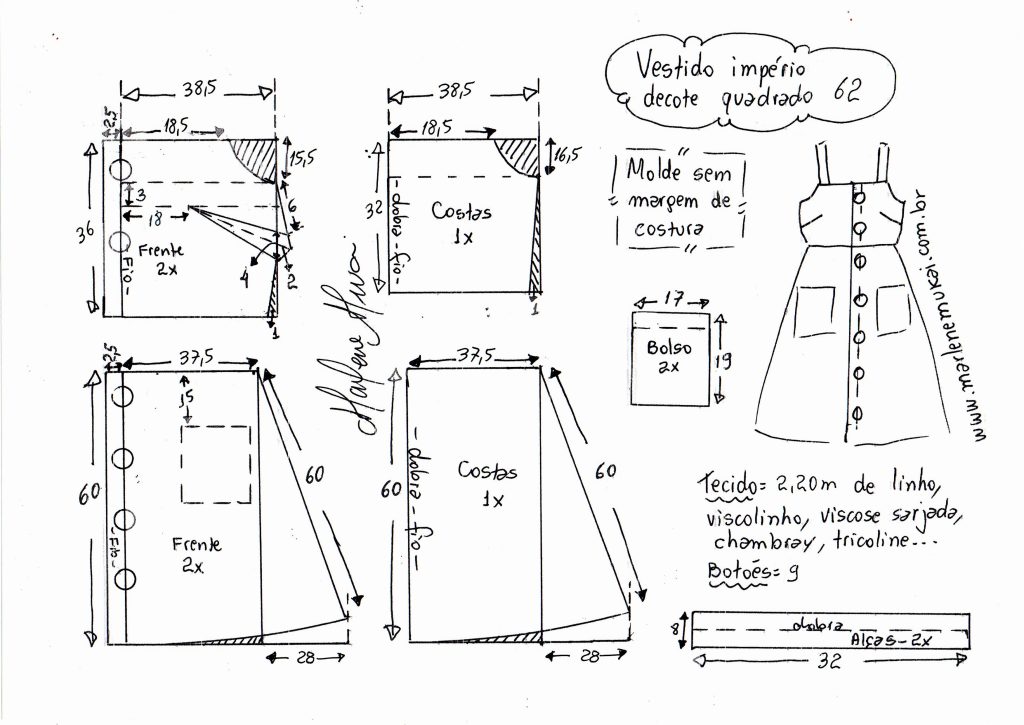 Vestido império
decote quadrado 62
38,5
2,5
18,5
15,5
36
3
18
6
4
2
1
Frente
2x
-Fio-
38,5
18,5
16,5
32
-dobra-fio-
Costas
1x
1
Molde sem
margem de
costura
Marlene Mukai
www.marlenemukai.com.br
17
19
Bolso
2x
2,5
37,5
15
60
60
Frente
2x
-Fio-
28
37,5
60
60
-dobra-fio-
Costas
1x
28
Tecido= 2,20m de linho,
viscolinho, viscose sarjada,
chambray, tricoline...
Botões= 9
8
dobra
Alças-2x
32